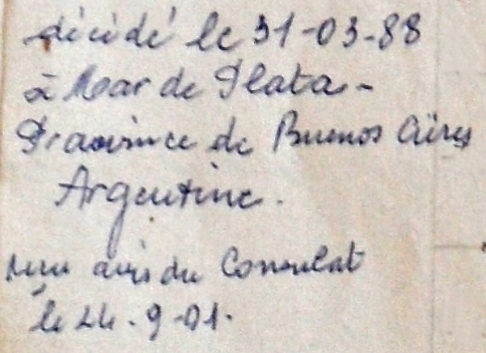 décidé le 31-03-88
à Mar de Plata -
Province de Buenos Aires
Argentine.
avis du Consulat
le 24-9-01.